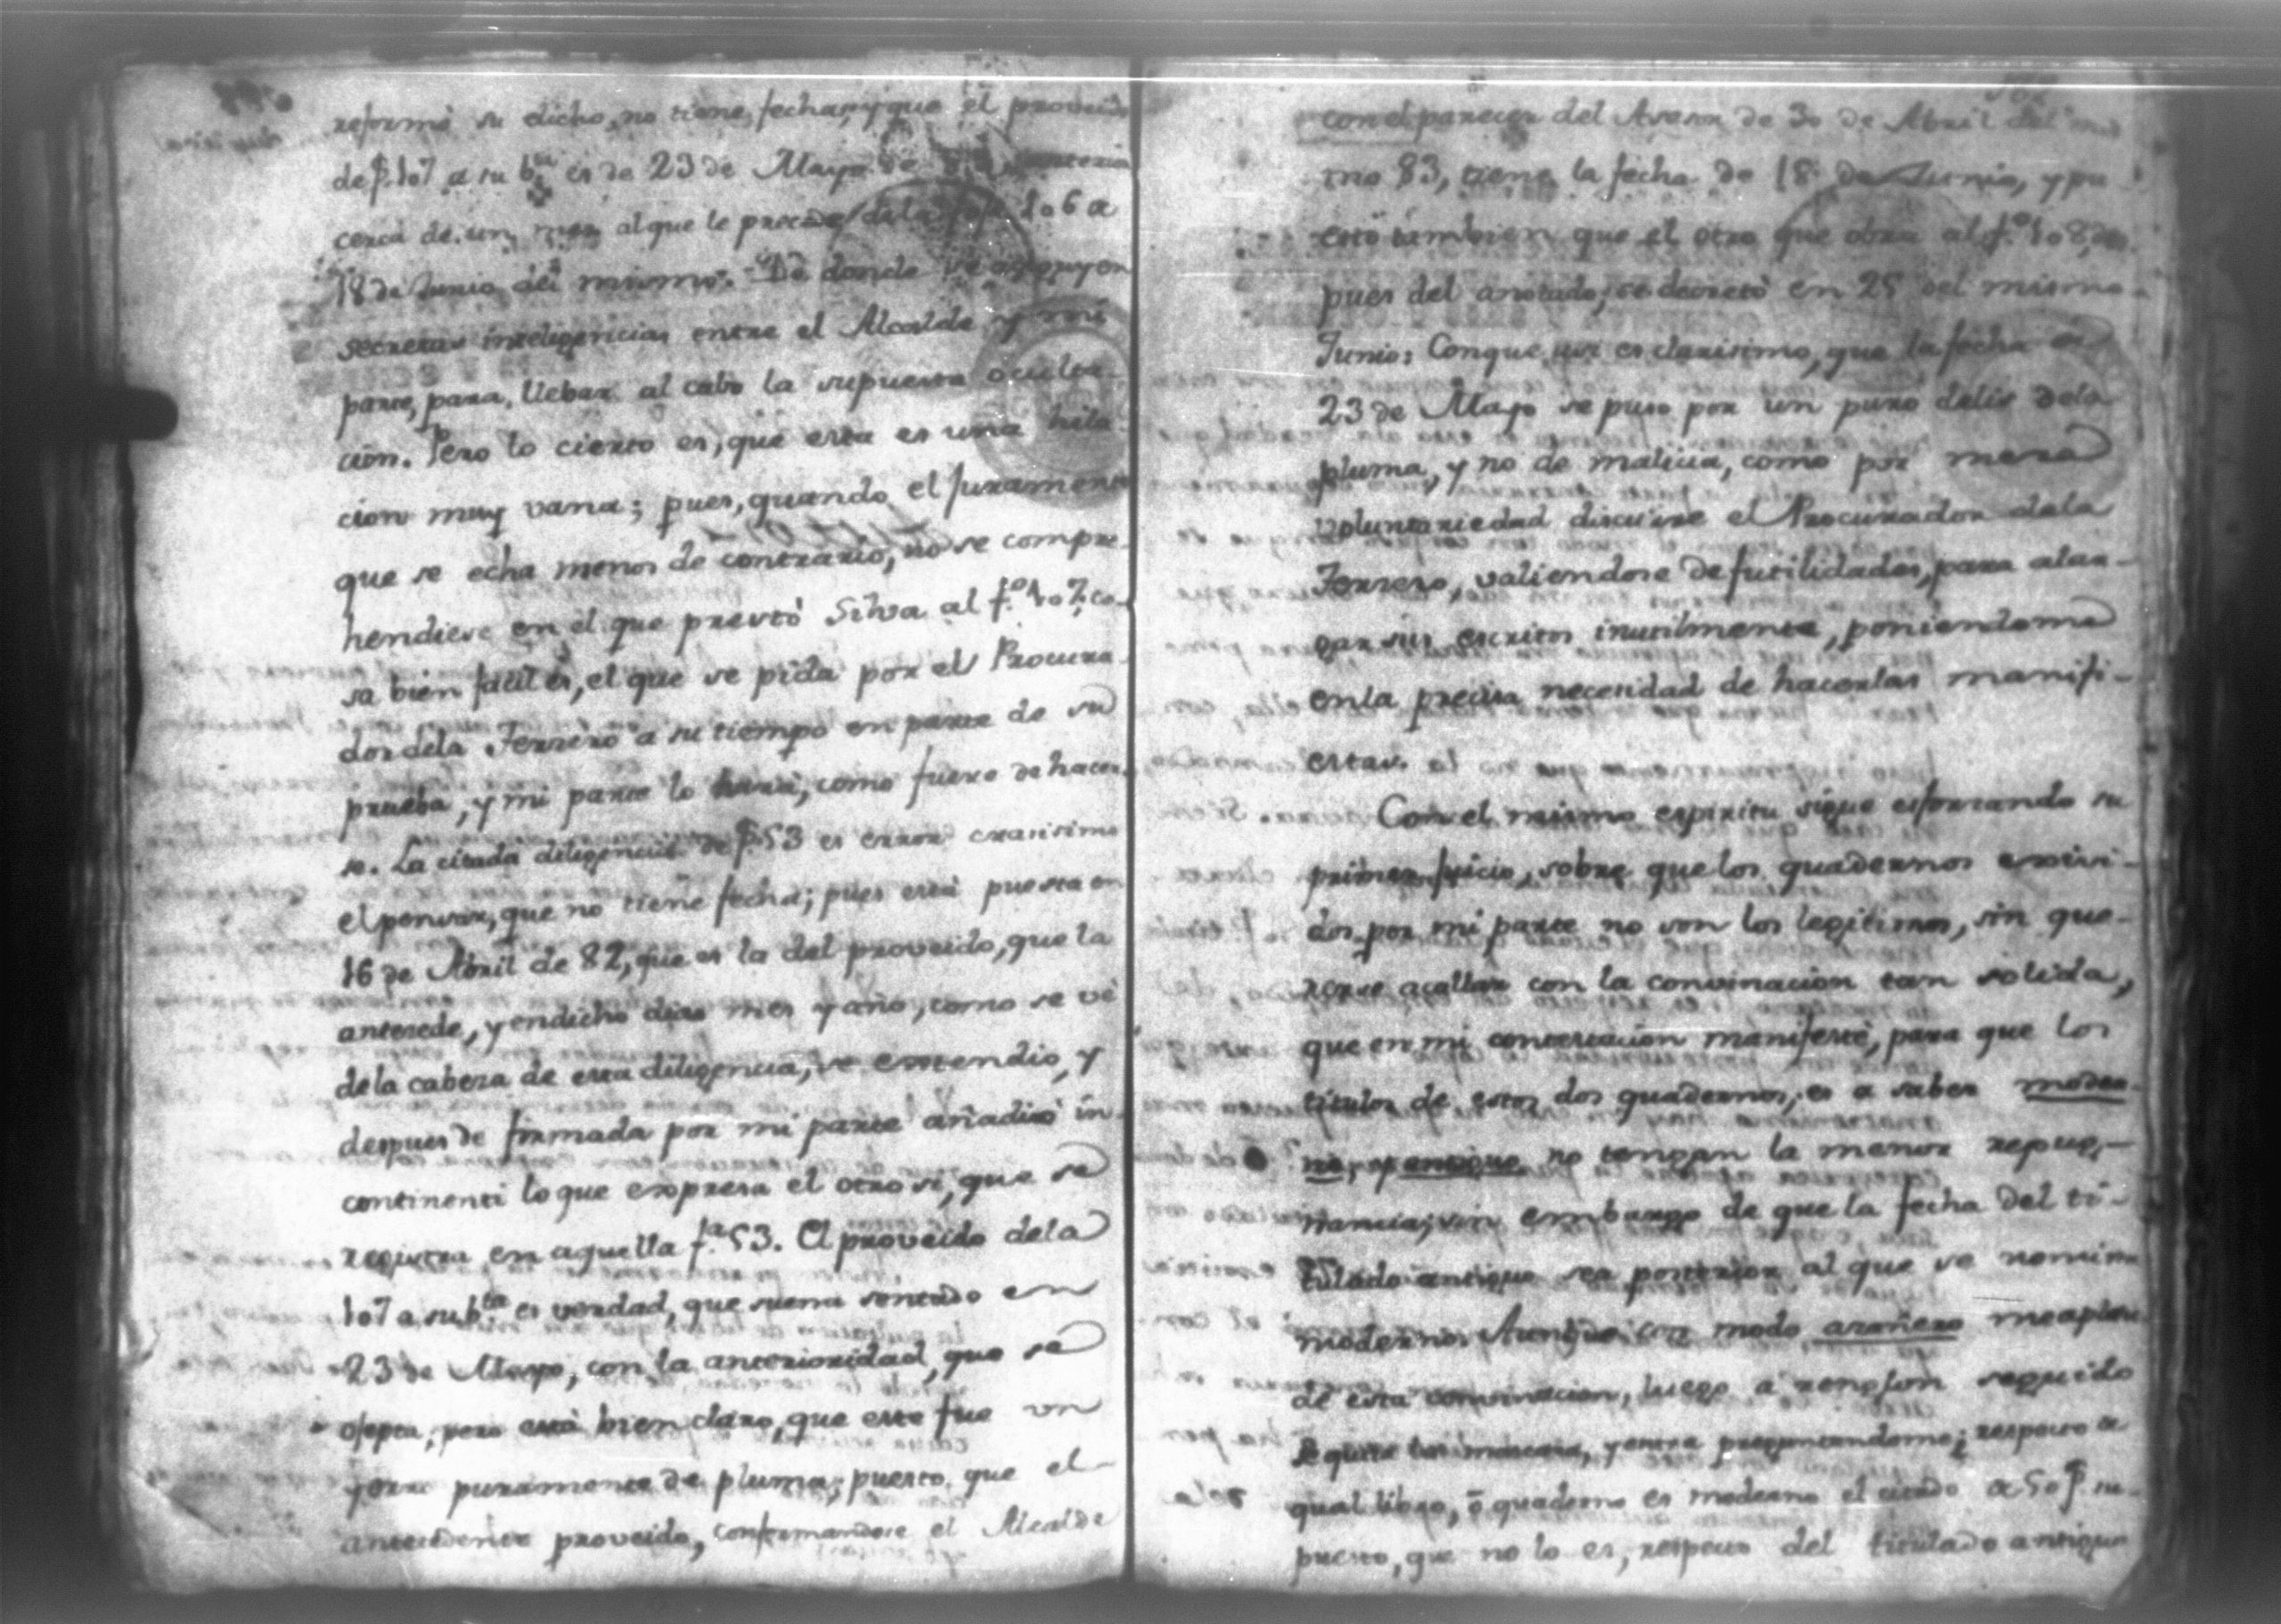 reformó su dicho, no tiene fecha, y que el proveido
de f. 107 a su b.ta es de 23 de Mayo de anterior
cerca de un mes al que le precede de la foja 106 a
18 de Junio del mismo. De donde se arguyen
secretas inteligencias entre el Alcalde y mi
parte, para llebar al cabo la supuesta oculta-
cion. Pero lo cierto es, que esta es una hila-
cion muy vana; pues, quando el juramento
que se echa menos de contrario, no se compre-
hendiese en el que prestó Silva al f.o 107, co-
sa bien facil es, el que se pida por el Procura-
dor dela Ferrero a su tiempo en parte de su
prueba, y mi parte lo hará, como fuere de hacer-
se. La citada diligencia de f. 53 es error crasisimo
el pensar, que no tiene fecha; pues está puesta en
16 de Abril de 82, que es la del proveido, que la
antecede, y en dicho dias mes y año, como se vé
dela cabeza de esta diligencia, se entendio, y
despues de firmada por mi parte añadió in-
continenti lo que expresa el otro si, que se
registra en aquella f.a 53. El proveido dela
107 a su b.ta es verdad, que suena sentado en
23 de Mayo, con la anterioridad, que se
ojepta; pero está bien claro, que este fue un
yerro puramente de pluma; puesto que el
antecedente proveido, conformandose el Alcalde
con el parecer del Asesor de 30 de Abril del mis-
mo 83, tiene la fecha de 18 de Junio, y pu-
esto tambien que el otro que obra al f.o 108, des-
pues del anotado, se decretó en 25 del mismo
Junio: Conque, asi es clarisimo, que la fecha de
23 de Mayo se puso por un puro delis dela
pluma, y no de malicia, como por mera
voluntariedad discurre el Procurador dela
Ferrero, valiendose de futilidades, para alar-
gar sus escritos inutilmente, poniendome
en la precisa necesidad de hacerlas manifi-
estas.
Con el mismo espiritu sigue esforzando su
primer juicio, sobre que los quadernos exsivi-
dos por mi parte no son los legitimos, sin que-
rerse acallar con la convinacion tan solida,
que en mi contestacion manifesté, para que los
titulos de estos dos quadernos, es a saber moder-
no, y antiguo, no tengan la menor repug-
nancia, sin embargo de que la fecha del ti-
tulado antiguo sea posterior al que se nomina
moderno. Aunque con modo arañero me aplau-
de esta convinacion, luego a renglon seguido
se quita la mascara, y entra preguntandome; respecto a
qual libro, ó quaderno es moderno el citado a 50 f. su-
puesto, que no lo es, respecto del titulado antiguo